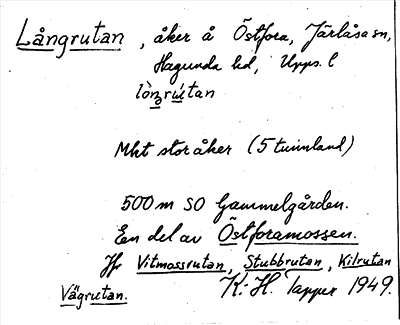 Långrutan, åker å Östfora, Järlåsa sn,
Hagunda hd, Upps. l
Mkt stor åker (5 tunnland)
500 m SO Gammelgården.
En del av Östforamossen.
Jfr Vitmossrutan, Stubbrutan, Kilrutan
Vägrutan. K. H. Tapper 1949.